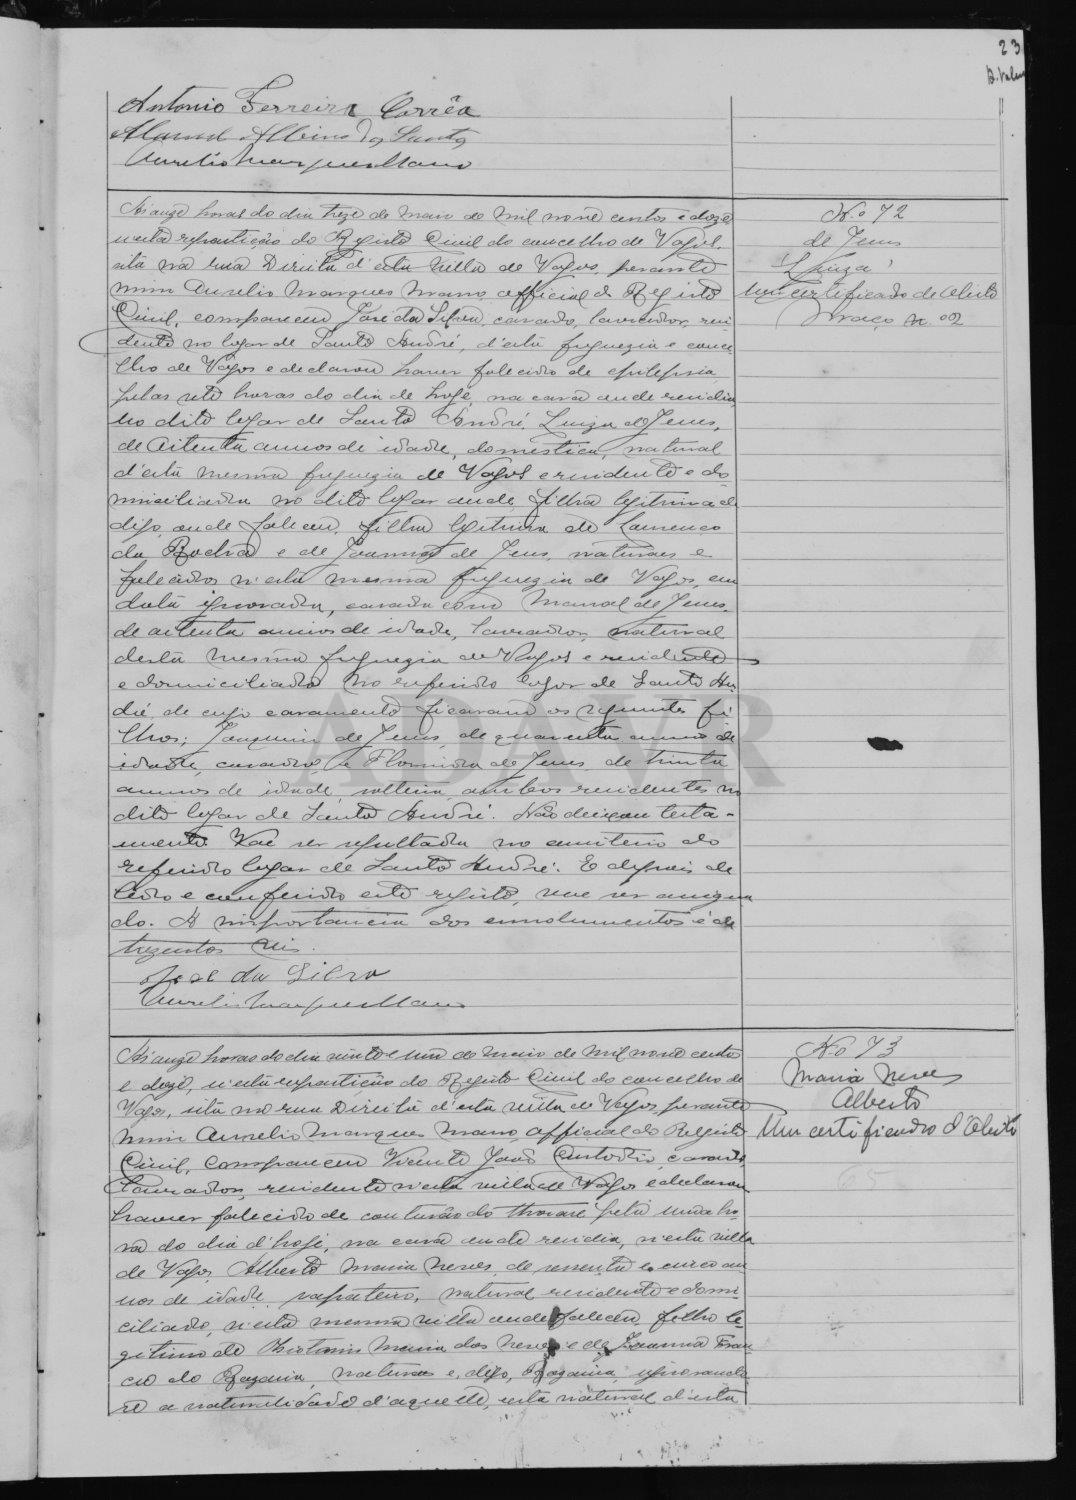 23
Antonio Ferreira Corrêa
Manuel Albino dos Santos
Aurelio Marques Mano
N.o 72
de Jesus
Luiza
Um certificado de óbito
Maço n.o 2
Ás onze horas do dia treze de Maio de mil nove centos e doze
n'esta repartição do Registo Civil do concelho de Vagos,
sita na rua Direita d'esta villa de Vagos, perante
mim Aurelio Marques Mano, official do Registo
Civil, compareceu José da Silva, casado, lavrador, resi
dente no logar de Santo André, d'esta freguezia e conce
lho de Vagos e declarou haver falecido de epilepsia
pelas sete horas do dia de hoje, na casa onde residia,
no dito logar de Santo André, Luiza de Jesus,
de oitenta annos de idade, domestica, natural
d'esta mesma freguezia de Vagos e residente e do
miciliada no dito logar onde, filha legitima de
digo, onde faleceu, filha legitima de Lourenço
da Rocha e de Joanna de Jesus, naturaes e
falecidos n'esta mesma freguezia de Vagos, em
data ignorada, casada com Manoel de Jesus,
de oitenta annos de idade, lavrador, natural
desta mesma freguezia de Vagos e residente
e domiciliado no referido logar de Santo An
dré, de cujo casamento ficaram os seguintes fi
lhos; Joaquim de Jesus, de quarenta annos de
idade, casado, e Florinda de Jesus, de trinta
annos de idade, solteira, ambos residentes no
dito logar de Santo André. Não deixou testa-
mento. Vae ser sepultada no cemiterio do
referido logar de Santo André. E depois de
lido e conferido este registo, vae ser assigna
do. A importancia dos emolumentos é de
trezentos reis.
José da Silva
Aurelio Marques Mano
ADAVR
N.o 73
Maria Neves
Alberto
Um certificado d'óbito
65
Ás onze horas do dia vinte e um de Maio de mil nove centos
e doze, n'esta repartição do Registo Civil do concelho de
Vagos, sita na rua Direita d'esta villa de Vagos perante
mim Aurelio Marques Mano, official do Registo
Civil, compareceu Vicente João Custodio, casado,
lavrador, residente n'esta villa de Vagos e declarou
haver falecido de contusão do thorax pela uma ho
ra do dia d'hoje, na casa onde residia, n'esta villa
de Vagos, Alberto Maria Neves, de sessenta e cinco an
nos de idade, sapateiro, natural residente e domi
ciliado, n'esta mesma villa onde faleceu, filho le
gitimo de Maria das Neves e de Joanna Fran
do naturaes e, digo, ignorando
se a naturalidade d'aquelle, esta natural d'esta